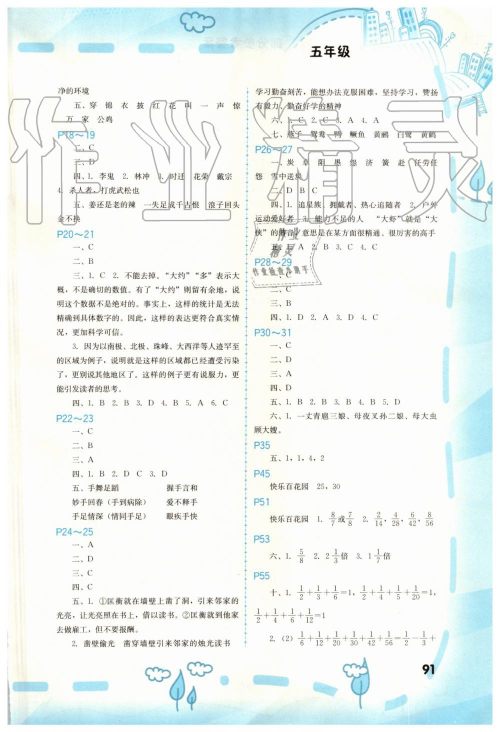 五年级
净的环境
五、穿 锦 衣 披 红 花 叫 一 声 惊
万 家 公鸡
P18～19
二、C
三、D
四、1. 李鬼 2. 林冲 3. 时迁 花荣 戴宗
4. 杀人者，打虎武松也
五、姜还是老的辣 一失足成千古恨 浪子回头
金不换
P20～21
一、C
二、B
三、1. C 2. 不能去掉。“大约”“多”表示大
概，不是确切的数值。有了“大约”则留有余地，说
明这个数据不是绝对的。事实上，这样的统计是无法
精确到具体数字的。因此，这样的表达更符合真实情
况，更加科学可信。
3. 因为以南极、北极、珠峰、大西洋等人迹罕至
的区域为例子，说明就是这样的区域都已经遭受污染
了，更别说其他地区了。这样的例子更有说服力，更
能引发读者的思考。
四、1. B 2. B 3. D 4. B 5. A 6. C
P22～23
一、C
二、B
三、A
四、1. B 2. D 3. C 3. D
五、手舞足蹈 握手言和
妙手回春（手到病除） 爱不释手
手足情深（情同手足） 眼疾手快
P24～25
一、A
二、D
三、C
四、D
五、1. ①匡衡就在墙壁上凿了洞，引来邻家的
光亮，让光亮照在书上，借以读书。②匡衡到他家
去做雇工，但不要报酬。
2. 凿壁偷光 凿穿墙壁引来邻家的烛光读书
学习勤奋刻苦，能想办法克服困难，坚持学习，赞扬
有毅力、勤奋好学的精神
六、1. C 2. C 3. A 4. A
P26～27
怨 雪中送炭
二、D B C
四、1. 追星族、拥戴者、热心追随者 2. 户外
运动爱好者 3. 能力不足的人 “大虾”就是“大
侠”的谐音，意思是在某方面很精通、很厉害的高手
五、1. A 2. B 3. C 4. C
P28～29
一、C
四、1. D 2. A 3. D 4. C
P30～31
一、C
二、D
三、A
四、D
五、1. B 2. B 3. B 4. B 5. D
六、1. 一丈青扈三娘、母夜叉孙二娘、母大虫
顾大嫂。
P35
五、1，1，4，2
P45
快乐百花园 25，30
P51
快乐百花园 1. 8/7或7/8 2. 2/14，4/28，6/42，8/56
P53
六、1. 5/8 2. 2 2/3倍 3. 1 1/7倍
P55
十、1. 1/2+1/3+1/6=1，1/2+1/4+1/5+1/20=1，
1/2+1/4+1/6+1/12=1
2.（2）1/6+1/12+1/20+1/30+1/42=1/2-1/3+
91